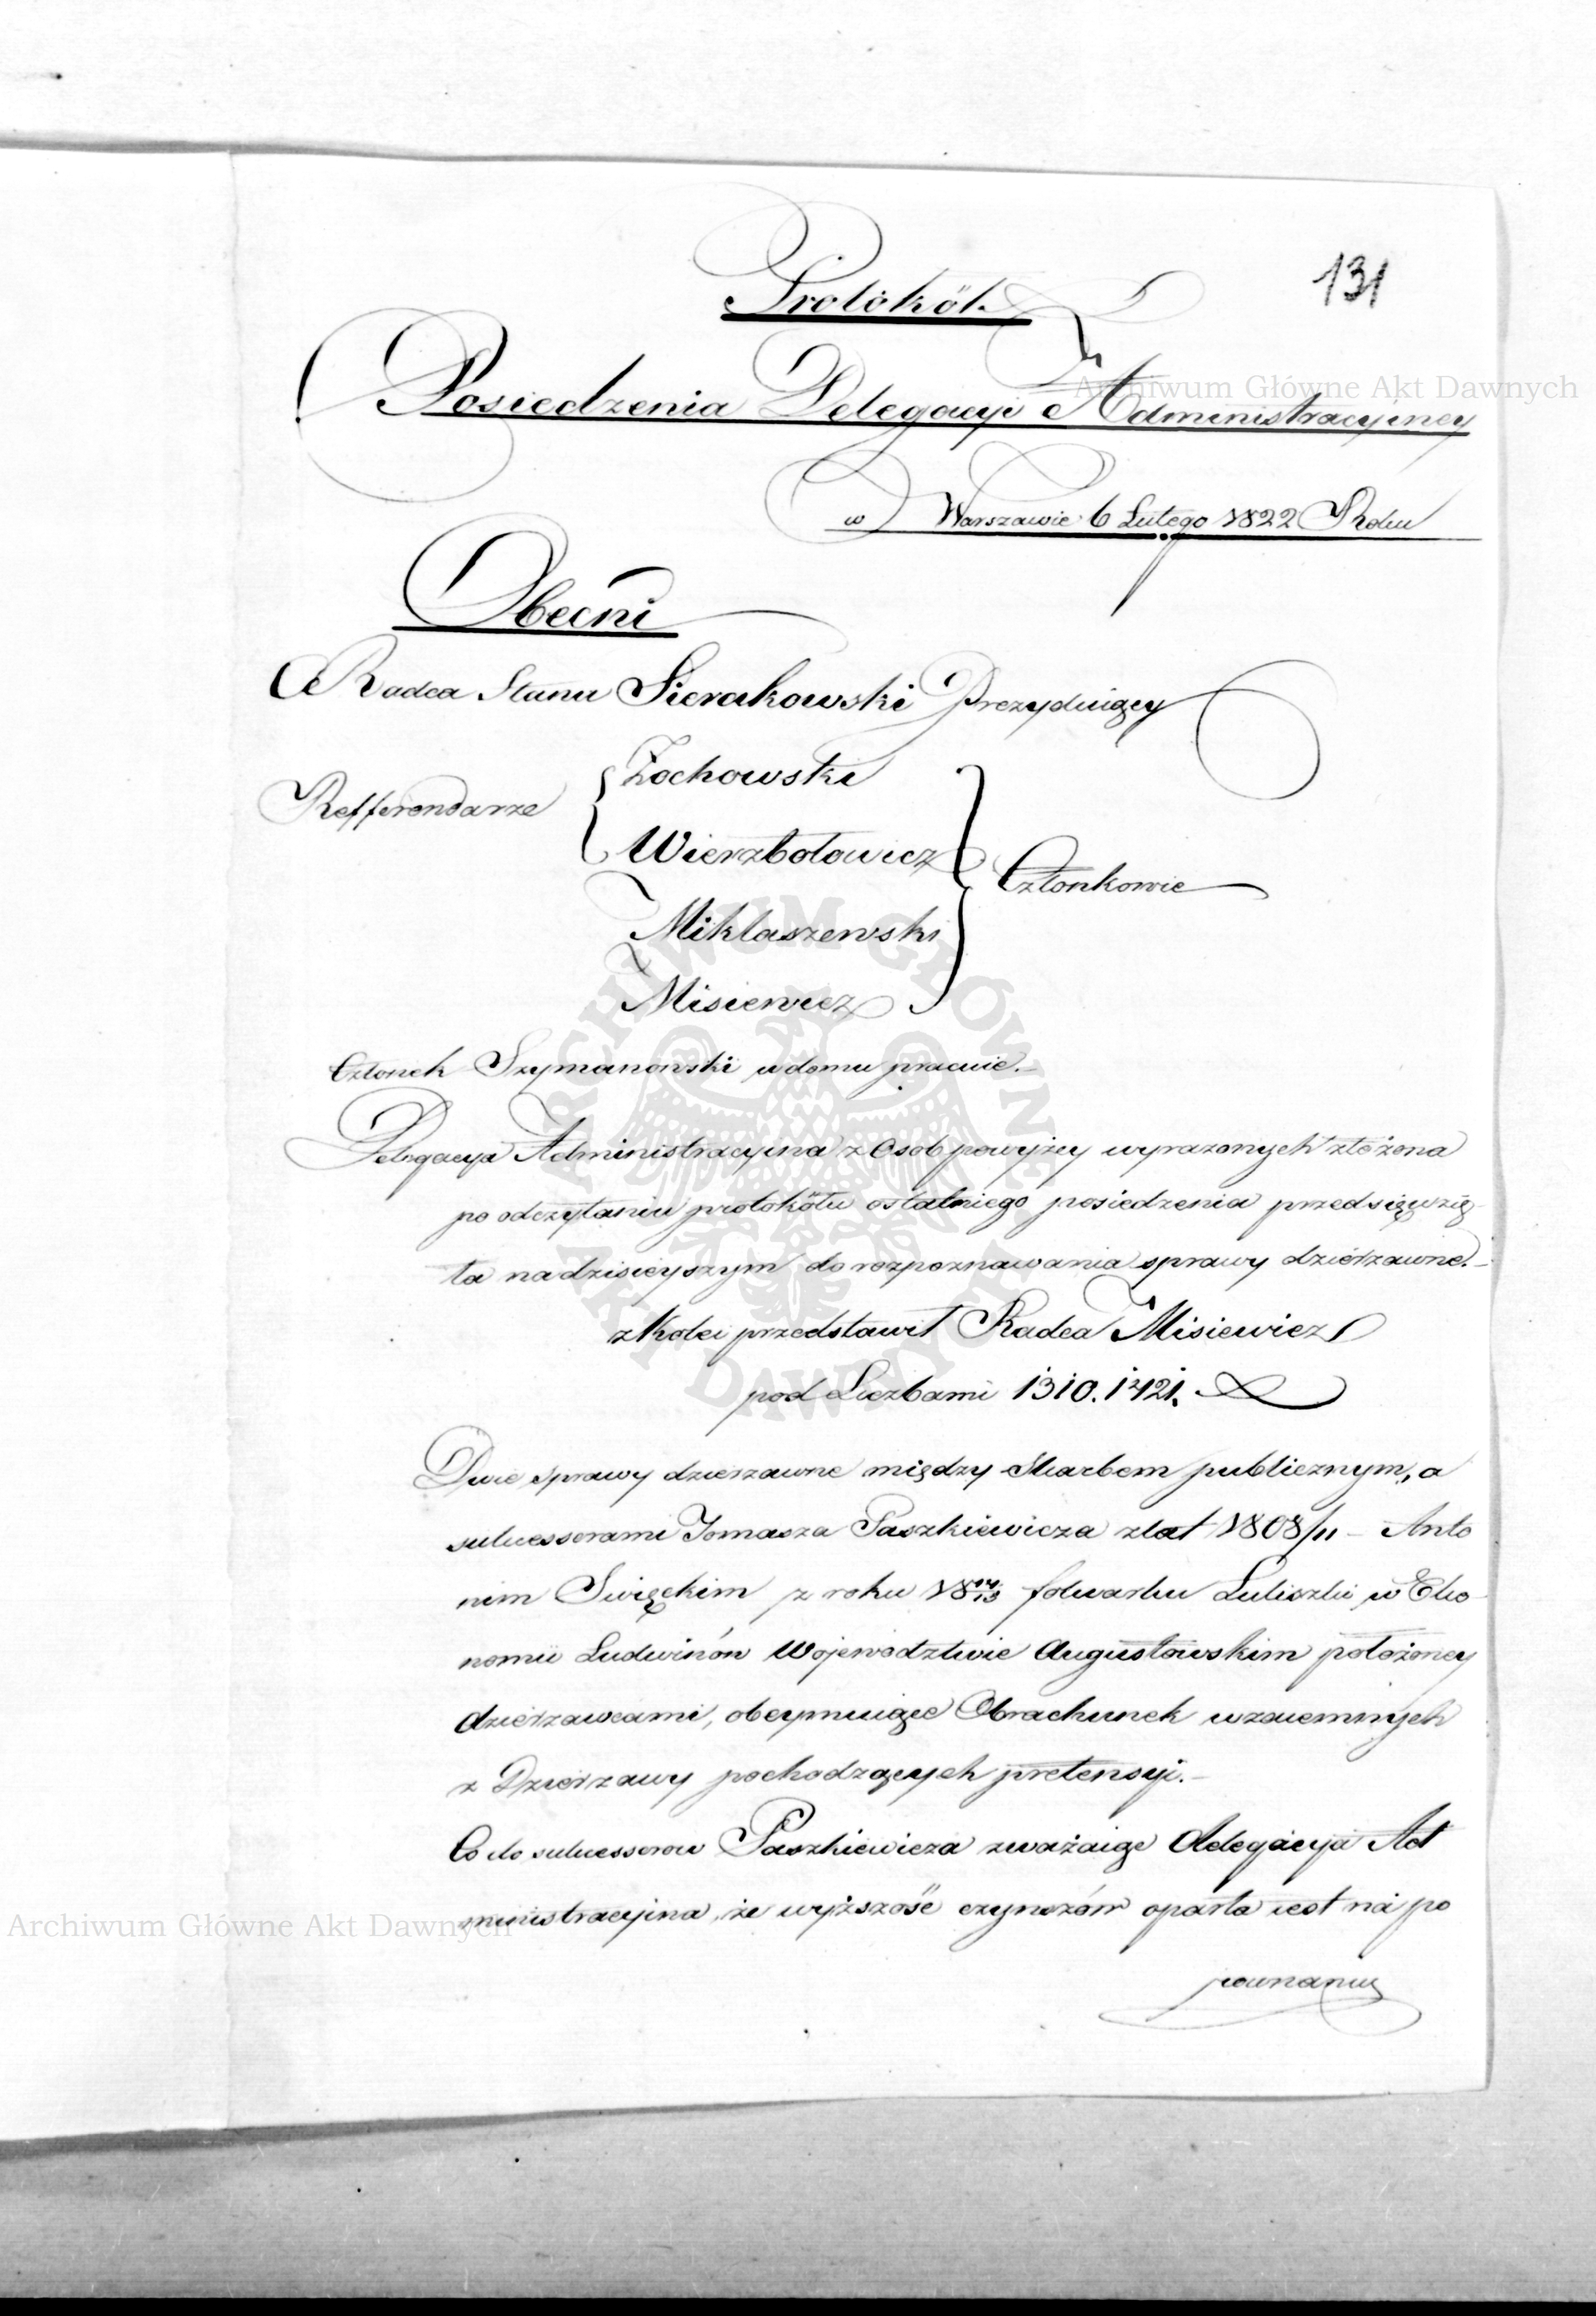 131
Protokół
Posiedzenia Delegacyi Administracyiney
w Warszawie 6 Lutego 1822 Roku
Obecni
Radca Stanu Sierakowski Prezyduiący
Refferendarze
Żochowski
Wierzbołowicz
Członkowie
Miklaszewski
Misiewicz
Członek Szymanowski w domu pracuie.
Delegacya Administracyina z Osob powyżey wyrazonych złożona
po odczytaniu protokółu ostatniego posiedzenia przedsięwzię
ta na dzisieyszym do rozpoznawania sprawy dzierżawne.
z Kolei przedstawił Radca Misiewicz
pod Liczbami 1310. 1421.
Dwie sprawy dzierzawne między Skarbem publicznym, a
sukcessorami Tomasza Paszkiewicza z lat 1808/11 – Anto
nim Swięckim z roku 18 12/13 folwarku Luliszki w Eko
nomii Ludwinów Województwie Augustowskim położoney
dzierzawcami, obeymuiące Obrachunek wzaiemnych
z Dzierzawy pochodzących pretensyi.
Co do sukcessorow Paszkiewicza zważaiąc Delegacyia Ad
ministracyina, że wyższość czynszów oparta iest na po
rownaniu
Archiwum Główne Akt Dawnych
Archiwum Główne Akt Dawnych
ARCHIWUM GŁÓWNE AKT DAWNYCH